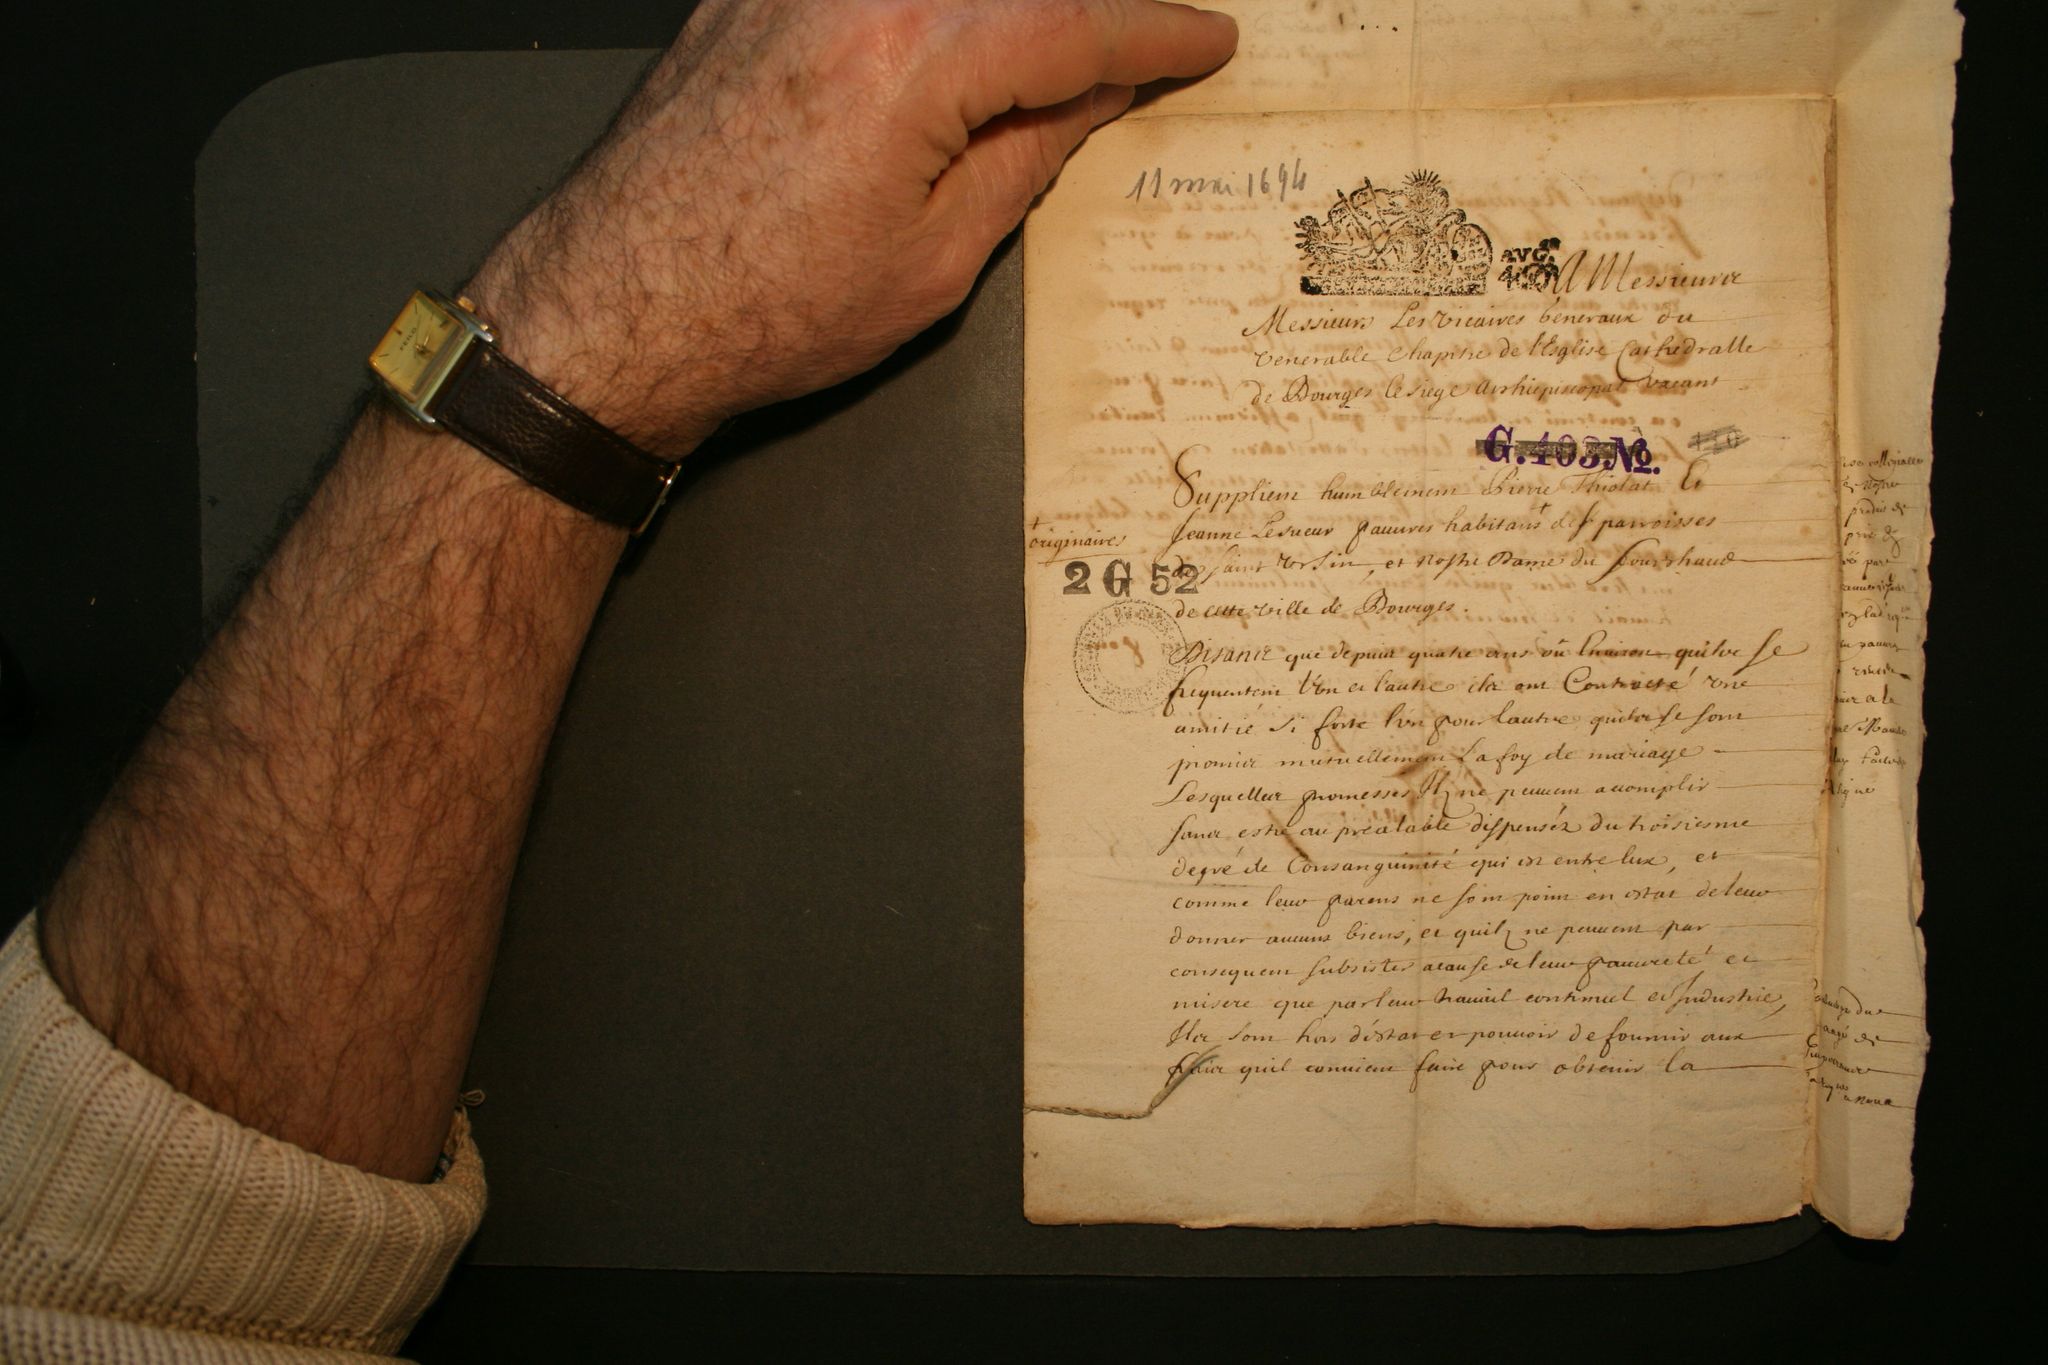 11 mai 1694
A Messieurs
Messieurs Les vicaires generaux du
venerable chapitre de l'Esglise Cathedralle
de Bourges le siege archiepiscopal vacant
G. 403. No. 110
Supplient humblement Pierre Thiolat Et
Jeanne Lesueur pauvres habitans + des parroisses
+
originaires
de saint Ursin, et nostre Dame du fourchaud
2 G 52
de cette ville de Bourges.
Disant que depuis quatre ans où Environ quils se
frequentent l'Un et l'autre ils ont Contracté une
amitié si forte l'un pour l'autre quils se sont
promis mutuellement La foy de mariage
Lesquelles promesses Ilz ne peuvent acomplir
sans estre au prealable dispensés du troisiesme
degré de Consanguinité qui est entre eux, et
comme leurs parens ne sont point en estat de leur
donner aucuns biens, et quilz ne peuvent par
consequent subsister acause de leur pauvreté et
misere que par leur travail continuel et Industrie,
Ils sont hors d'éstat et pouvoir de fournir aux
frais quil convient faire pour obtenir la